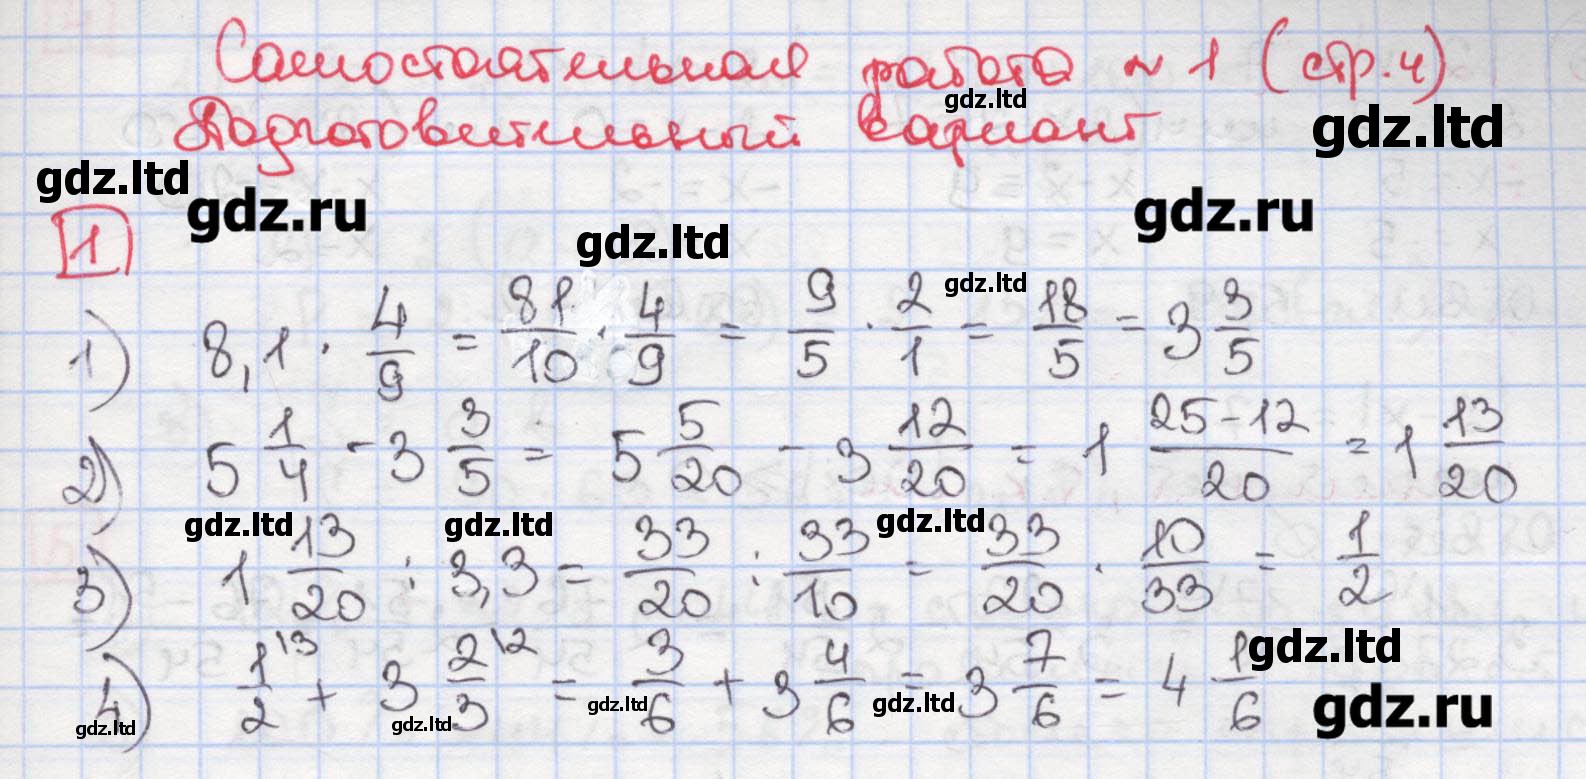 Самостоятельная работа №1 (стр.4)
gdz.ltd
Подготовительный вариант
gdz.ltd
gdz.ltd
gdz.ru
gdz.ru
1
gdz.ltd
gdz.ltd
1) 8,1 · 4/9 = 81/10 · 4/9 = 9/5 · 2/1 = 18/5 = 3 3/5
2) 5 1/4 - 3 3/5 = 5 5/20 - 3 12/20 = 1 25-12/20 = 1 13/20
gdz.ltd gdz.ltd gdz.ltd
3) 1 13/20 : 3,3 = 33/20 : 33/10 = 33/20 · 10/33 = 1/2
4) 1\3/2 + 3 2\2/3 = 3/6 + 3 4/6 = 3 7/6 = 4 1/6
gdz.ltd
gdz.ltd gdz.ltd gdz.ltd gdz.ltd gdz.ru